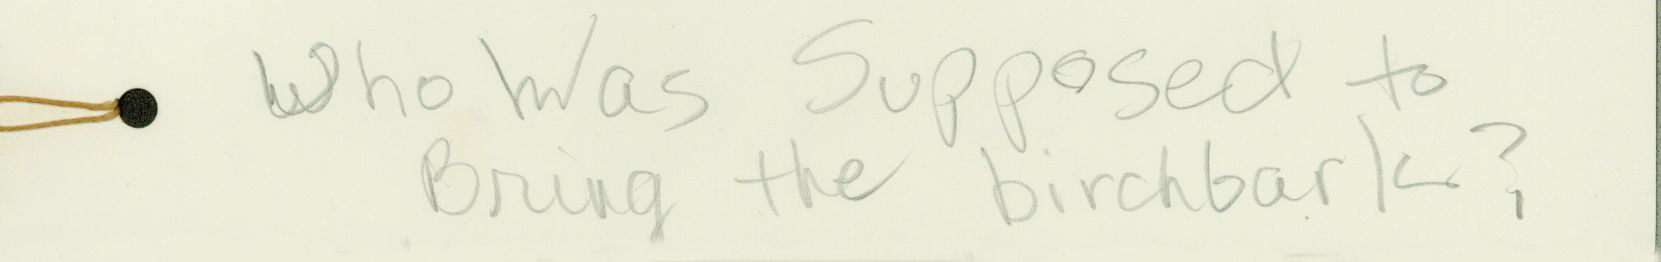 Who Was Supposed to
Bring the birchbark?